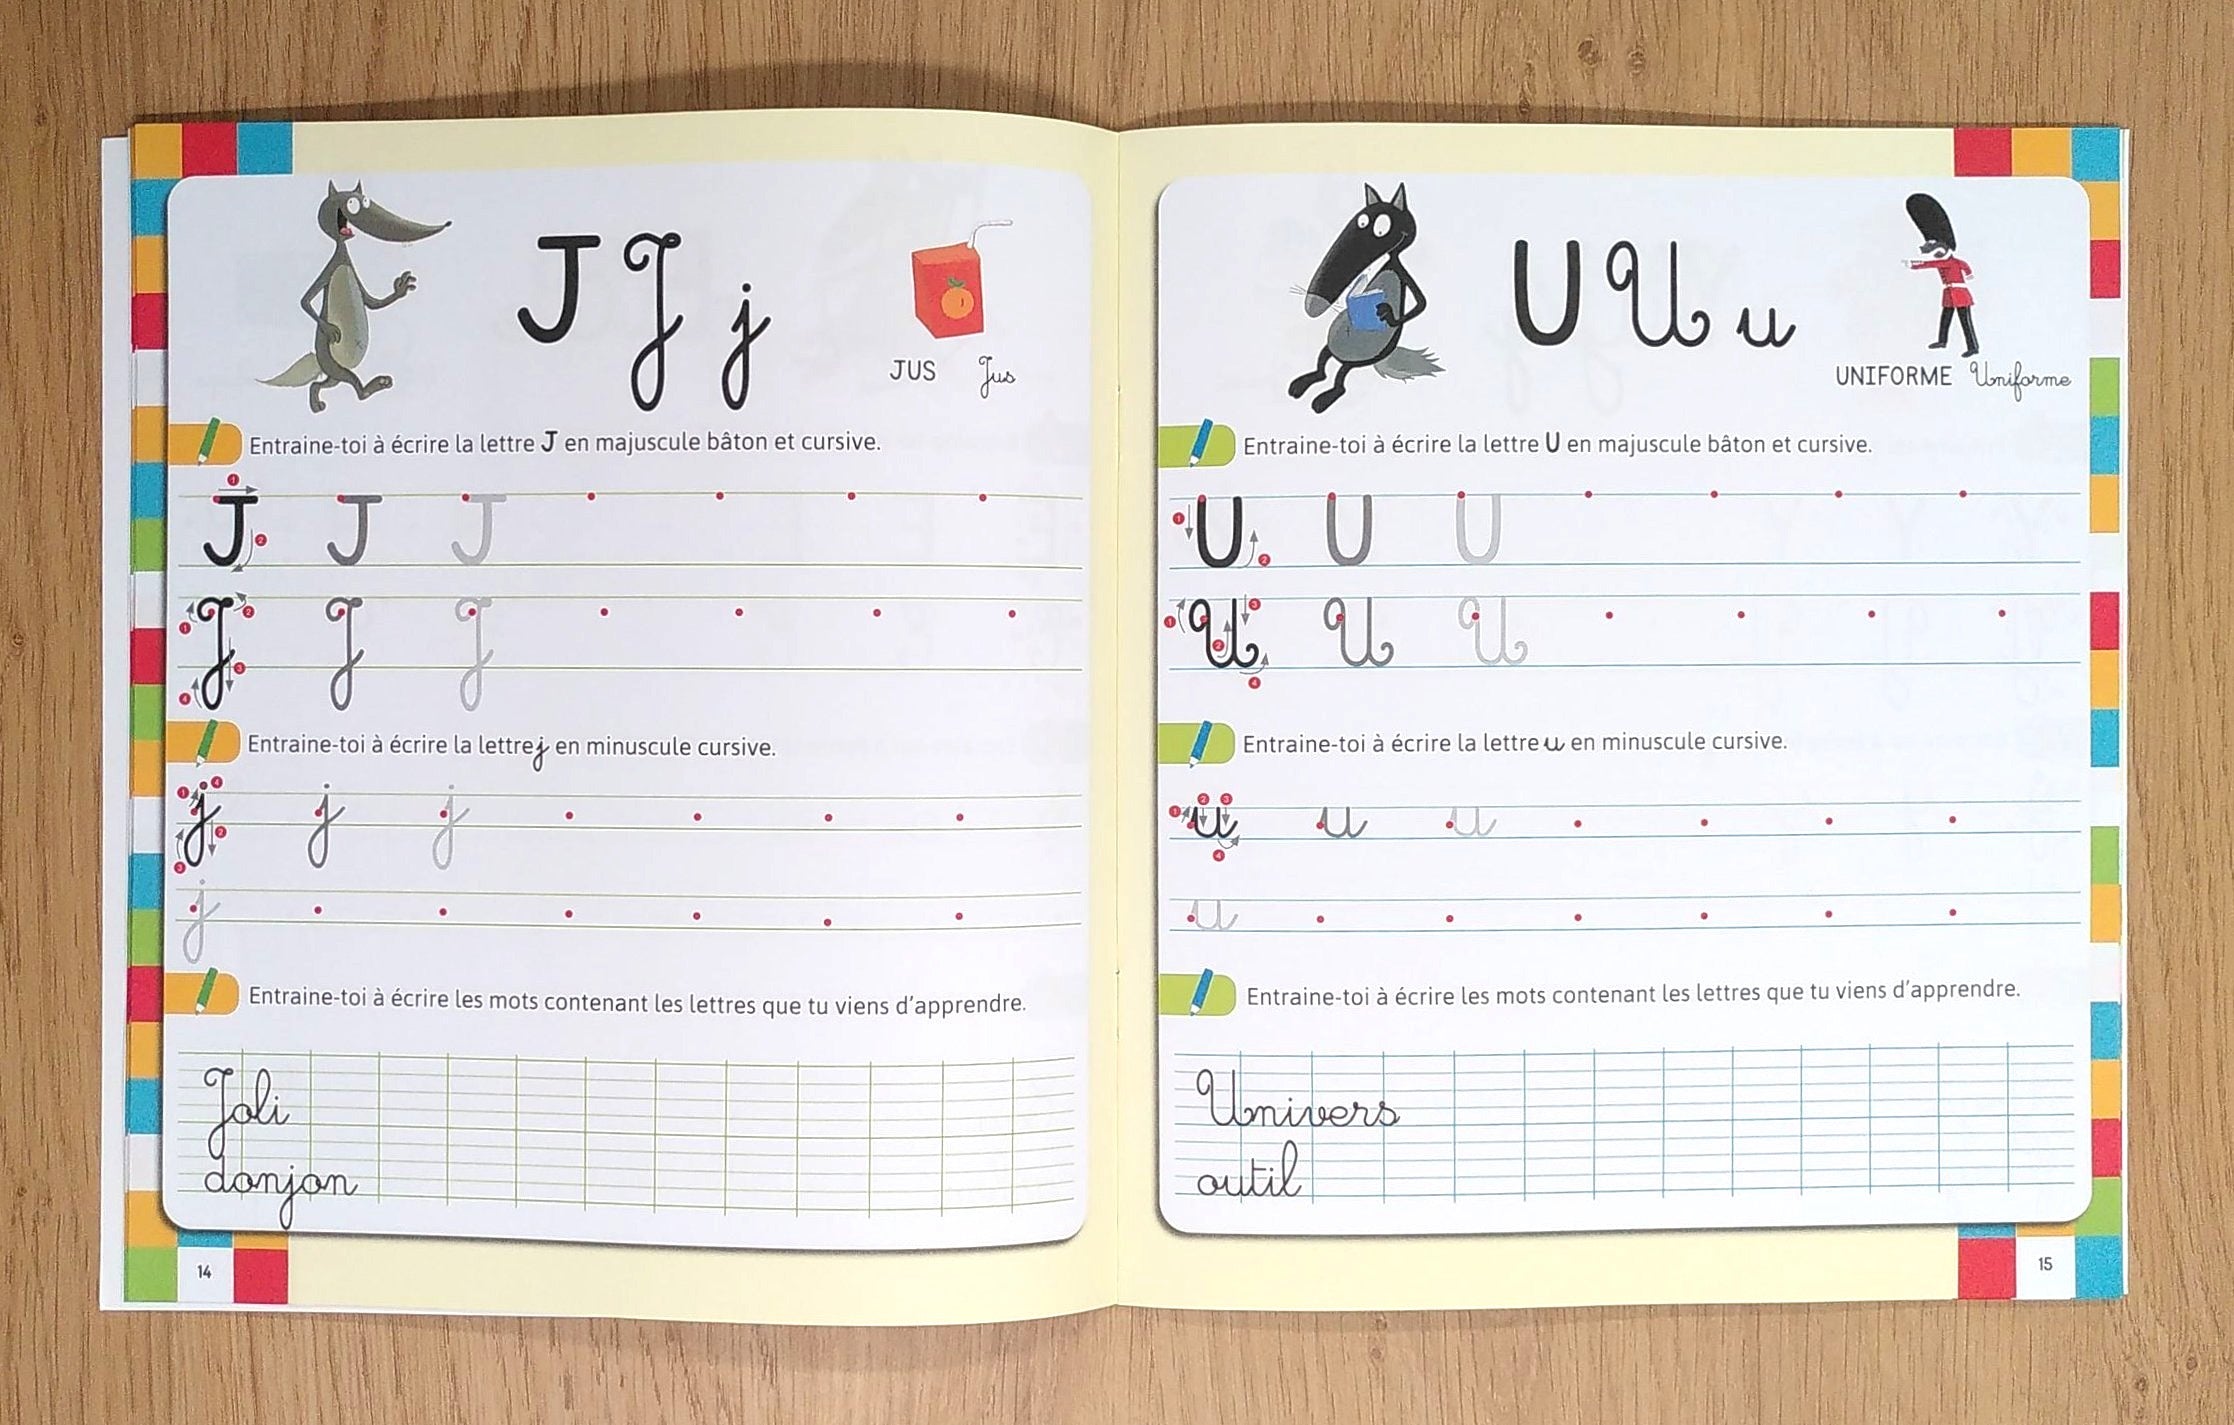 J J j
JUS Jus
Entraine-toi à écrire la lettre J en majuscule bâton et cursive.
1
J J J
2
1 2
J J J
3
4
Entraine-toi à écrire la lettre j en minuscule cursive.
1 4
j j j
2
3
j
Entraine-toi à écrire les mots contenant les lettres que tu viens d'apprendre.
Joli
donjon
14
U U u
UNIFORME Uniforme
Entraine-toi à écrire la lettre U en majuscule bâton et cursive.
1
U U U
2
1 3
U U U
2
4
Entraine-toi à écrire la lettre u en minuscule cursive.
1 2 3
u u u
4
u
Entraine-toi à écrire les mots contenant les lettres que tu viens d'apprendre.
Univers
outil
15